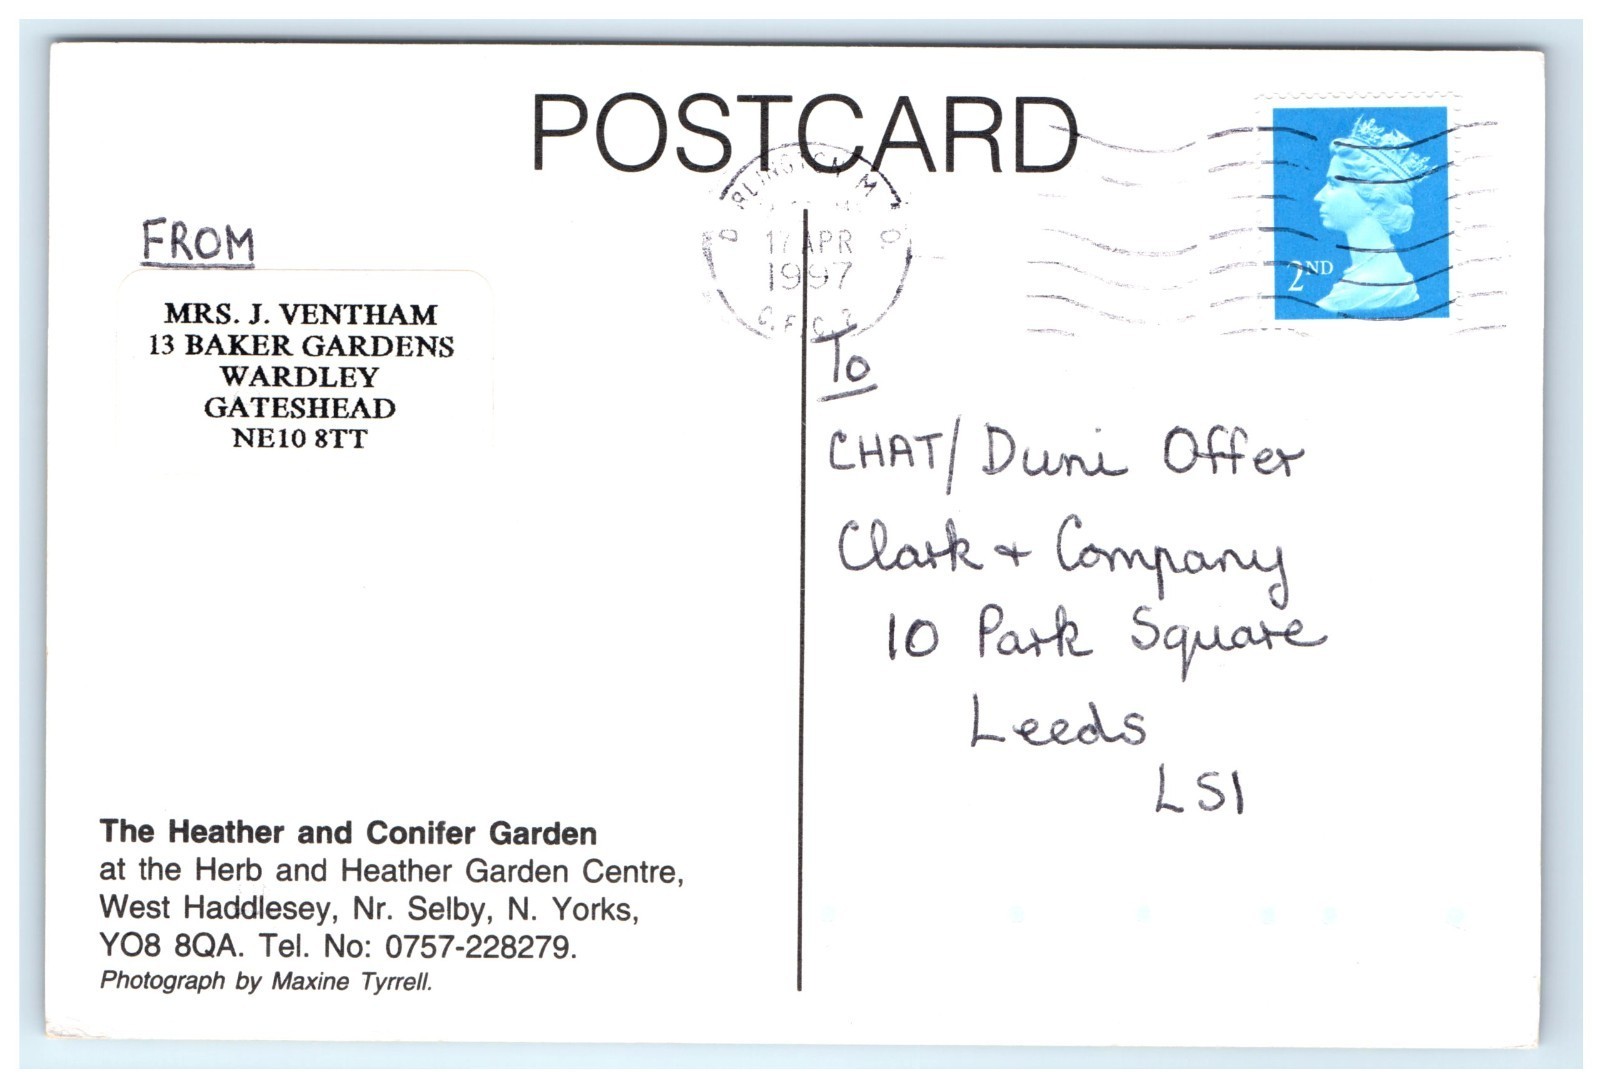 POSTCARD
FROM
MRS. J. VENTHAM
13 BAKER GARDENS
WARDLEY
GATESHEAD
NE10 8TT
17 APR
1997
2ND
To
CHAT/Duni Offer
Clark + Company
10 Park Square
Leeds
LS1
The Heather and Conifer Garden
at the Herb and Heather Garden Centre,
West Haddlesey, Nr. Selby, N. Yorks,
YO8 8QA. Tel. No: 0757-228279.
Photograph by Maxine Tyrrell.